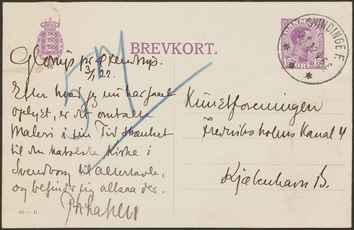 BREVKORT.
Glorup pr. Ørbæk
3/1 22.
Efter hvad jeg nu har faaet
oplyst, er det omtalte
Maleri i sin Tid skænket
til den katolske Kirke i
Svendborg til Altertavle,
og befinder sig altsaa der.
Kunstforeningen
Frederiksholms Kanal 4
Kjøbenhavn B.